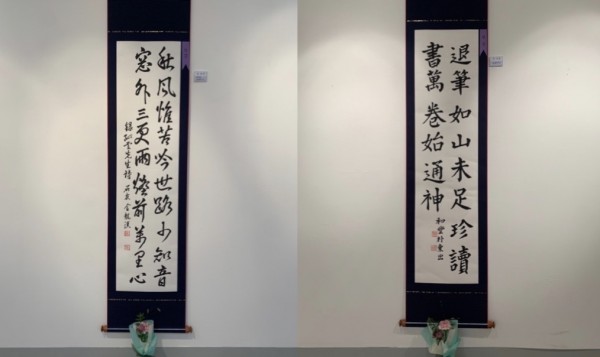 秋風惟苦吟世路少知音
窓外三更雨燈前萬里心
退筆如山未足珍讀
書萬卷始通神